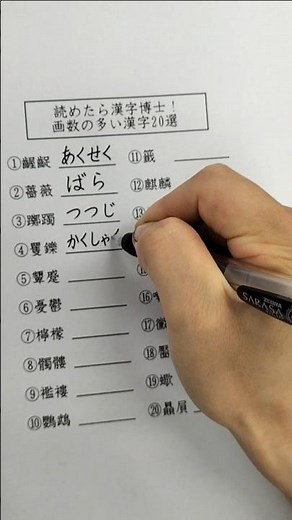 読めたら漢字博士！
画数の多い漢字20選
①齷齪 あくせく
②薔薇 ばら
③躑躅 つつじ
④矍鑠 かくしゃく
⑤顰蹙
⑥憂鬱
⑦檸檬
⑧髑髏
⑨襤褸
⑩鸚鵡
⑪籤
⑫麒麟
⑬
⑯
⑰黴
⑱
⑲蠍
⑳贔屓
ZEBRA
SARASA